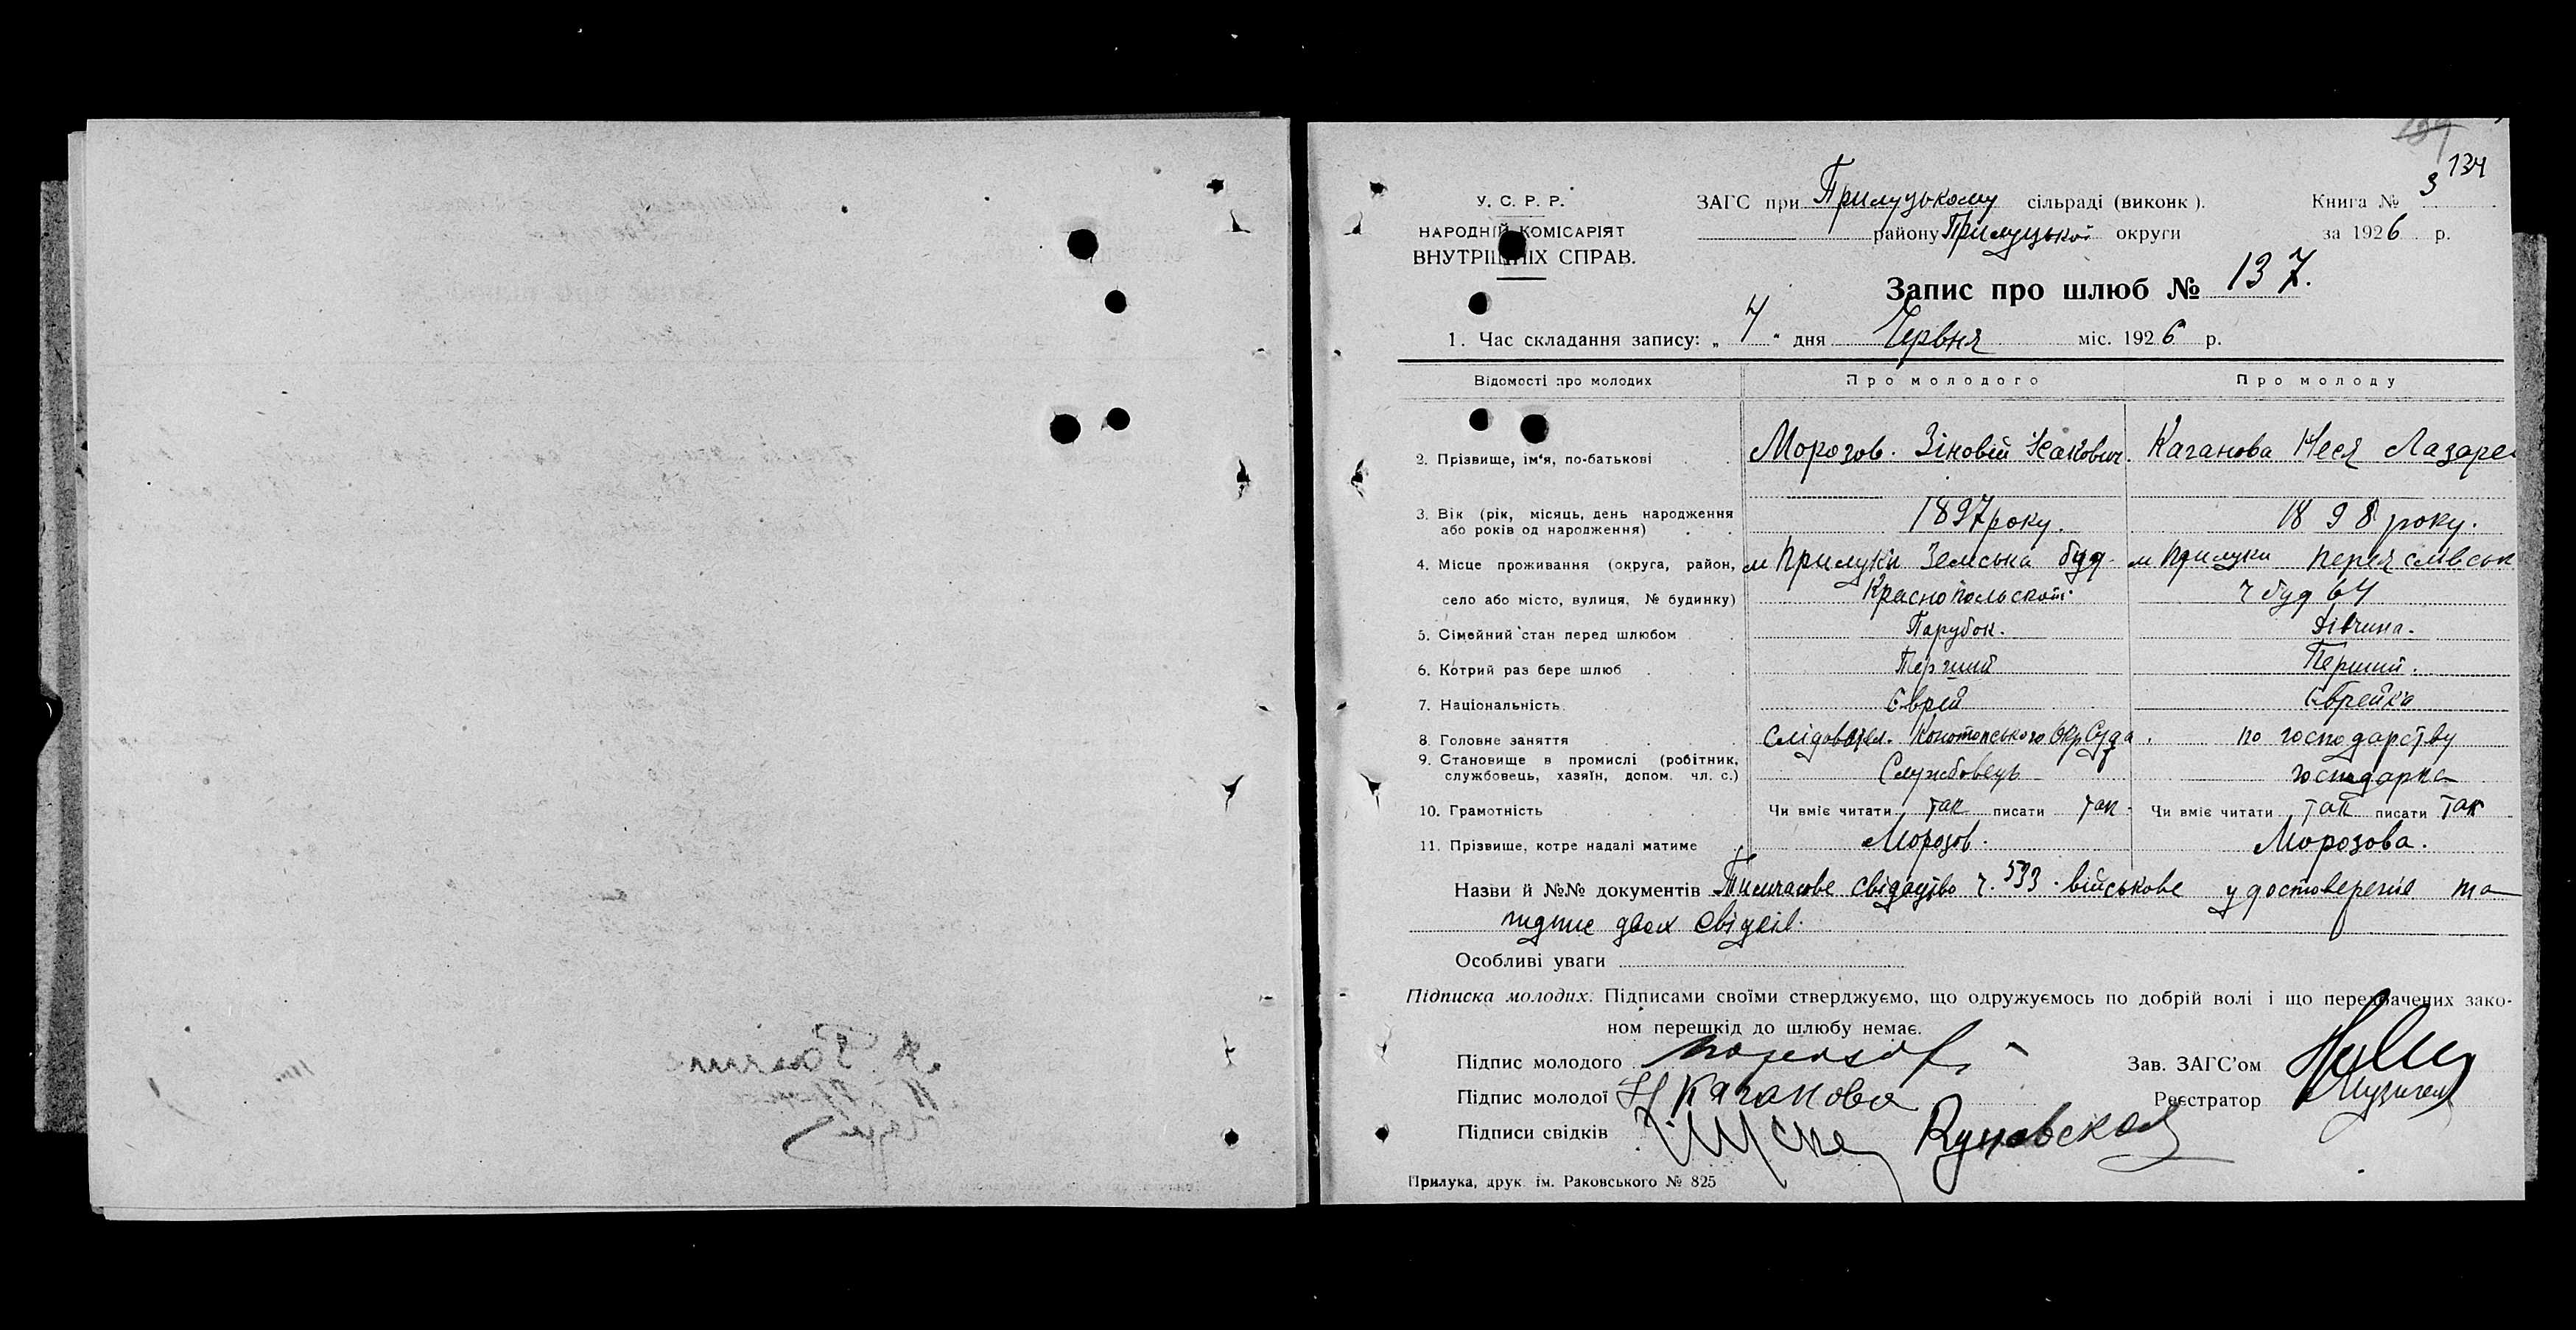 134
У. С. Р. Р.
НАРОДНІЙ КОМІСАРІЯТ
ВНУТРІШНІХ СПРАВ.
ЗАГС при Прилуцькому сільраді (виконк).
району Прилуцької округи
Книга № 3
за 1926 р.
Запис про шлюб № 137.
1. Час складання запису: „ 7 " дня Червня міс. 1926 р.
Відомості про молодих Про молодого Про молоду
2. Прізвище, ім'я, по-батькові Морозов. Зіновій Ісакович. Каганова Неся Лазаре
3. Вік (рік, місяць, день народження 1897 року. 1898 року.
або років од народження)
4. Місце проживання (округа, район, м Прилуки Земська буд. м Прилуки Переяславськ
село або місто, вулиця, № будинку) Краснопольской. ч буд 64
5. Сімейний стан перед шлюбом Парубок. Дівчина.
6. Котрий раз бере шлюб Перший Перший.
7. Національність Єврей Єврейка
8. Головне заняття Слідовател. Конотопського ОкрСуда. по господарству
9. Становище в промислі (робітник, Службовець господарка
службовець, хазяїн, допом. чл. с.)
10. Грамотність Чи вміє читати так писати так. Чи вміє читати так писати так
11. Прізвище, котре надалі матиме Морозов. Морозова.
Назви й №№ документів Тимчасове свідоцтво ч. 533. військове удостоверение та
підпис двох свідків.
Особливі уваги
Підписка молодих: Підписами своїми стверджуємо, що одружуємось по добрій волі і що передбачених зако-
ном перешкід до шлюбу немає.
Підпис молодого
Зав. ЗАГС'ом
Підпис молодої Н Каганова
Реєстратор
Підписи свідків
Прилука, друк. ім. Раковського № 825